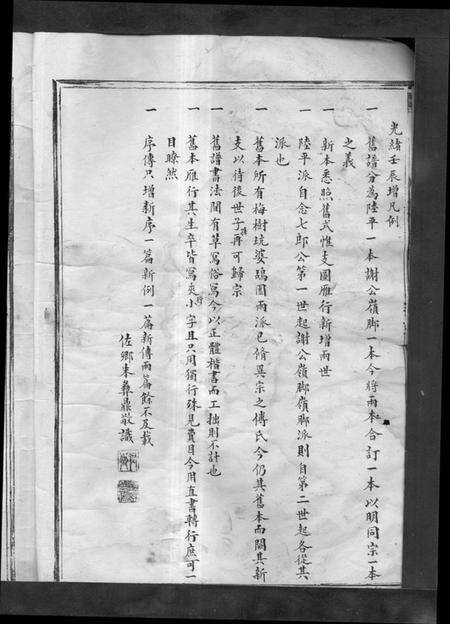 光緒壬辰增凡例
一 舊譜分為陸平一本謝公嶺脚一本今將兩本合訂一本以明同宗一本
之義
一 新本悉照舊式惟支圖雁行新增兩世
一 陸平派自念七郎公第一世起謝公嶺脚嶺脚派則自第二世起各從其
派也
一 舊本所有梅樹琉婆鴟圓兩派已脩異宗之傅氏今仍其舊本而闗其新
支以待後世子孫再可歸宗
一 舊譜書法間有草寫俗寫今以正體楷書而工拙則不計也
一 舊本雁行其生卒皆寫夾行小字且只用獨行殊見費目今用直書轉行庶可一
目瞭然
一 序傳只增新序一篇新例一篇新傳兩篇餘不及載
佐鄉朱彝鼎敬識